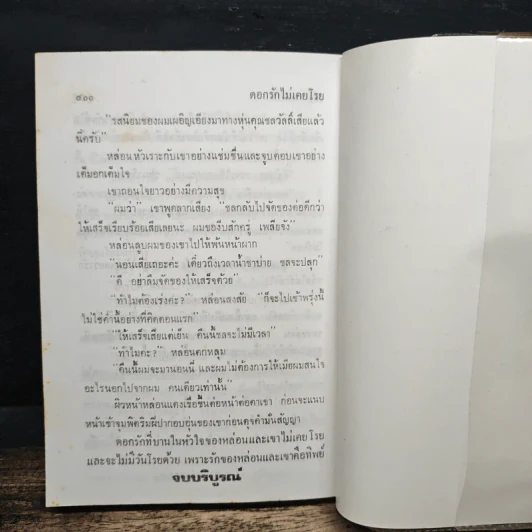 ๔๐๐ ดอกรักไม่เคยโรย
"รสนิยมของผมเผอิญเอียงมาทางหุ่นคุณเชลวัลลิ์เสียแล้ว
นี่ครับ"
หล่อนหัวเราะกับเขาอย่างแช่มชื่นและจูบตอบเขาอย่าง
เต็มอกเต็มใจ
เขาถอนใจยาวอย่างมีความสุข
"ผมว่า" เขาพูดลากเสียง "ชลกลับไปจัดของต่อดีกว่า
ให้เสร็จเรียบร้อยเสียเลยนะ ผมของีบสักครู่ เพลียจัง"
หล่อนลูบผมของเขาไปให้พ้นหน้าผาก
"นอนเสียเถอะค่ะ เดี๋ยวถึงเวลาน้ำชาบ่าย ชลจะปลุก"
"ดี อย่าลืมจัดของให้เสร็จด้วย"
"ทำไมต้องเร่งคะ?" หล่อนสงสัย "ก็จะไปเช้าพรุ่งนี้
ไม่ใช่ค่ำนี้อย่างที่คิดตอนแรก"
"ให้เสร็จเสียแต่เย็น คืนนี้ชลจะไม่มีเวลา"
"ทำไมคะ?" หล่อนตกหลุม
"คืนนี้ผมจะมานอนนี่ และผมไม่ต้องการให้เมียผมสนใจ
อะไรนอกไปจากผม คนเดียวเท่านั้น"
ผิวหน้าหล่อนแดงเรื่อขึ้นต่อหน้าต่อตาเขา ก่อนจะแนบ
หน้าเข้าจุมพิตริมฝีปากอบอุ่นของเขาก่อนดุจคำมั่นสัญญา
ดอกรักที่บานในหัวใจของหล่อนและเขาไม่เคยโรย
และจะไม่มีวันโรยด้วย เพราะรักของหล่อนและเขาคือทิพย์
จบบริบูรณ์